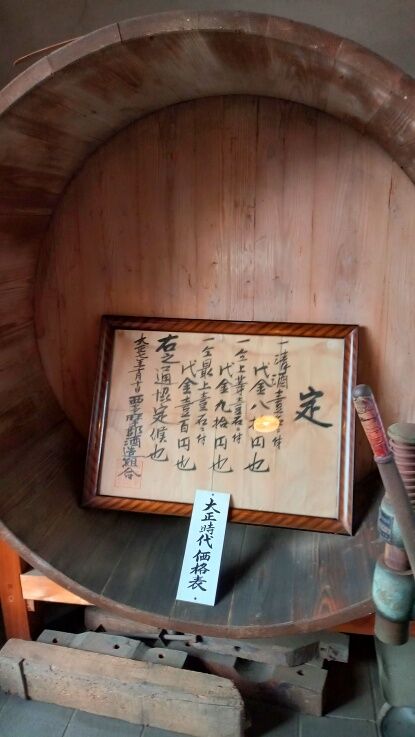 定
一清酒壹石ニ付
代金八 円也
一仝上等壹石ニ付
代金九拾円也
一仝最上壹石ニ付
代金壹百円也
右之通協定候也
大正 年 月 日 西多摩郡酒造組合
大正時代 価格表